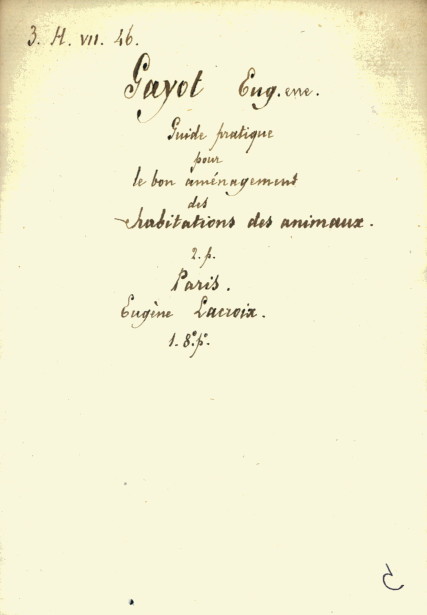 3. H. VII. 46.
Gayot Eug.ene.
Guide pratique
pour
le bon aménagement
des
habitations des animaux.
2. p.
Paris.
Eugène Lacroix.
1. 8º pº.